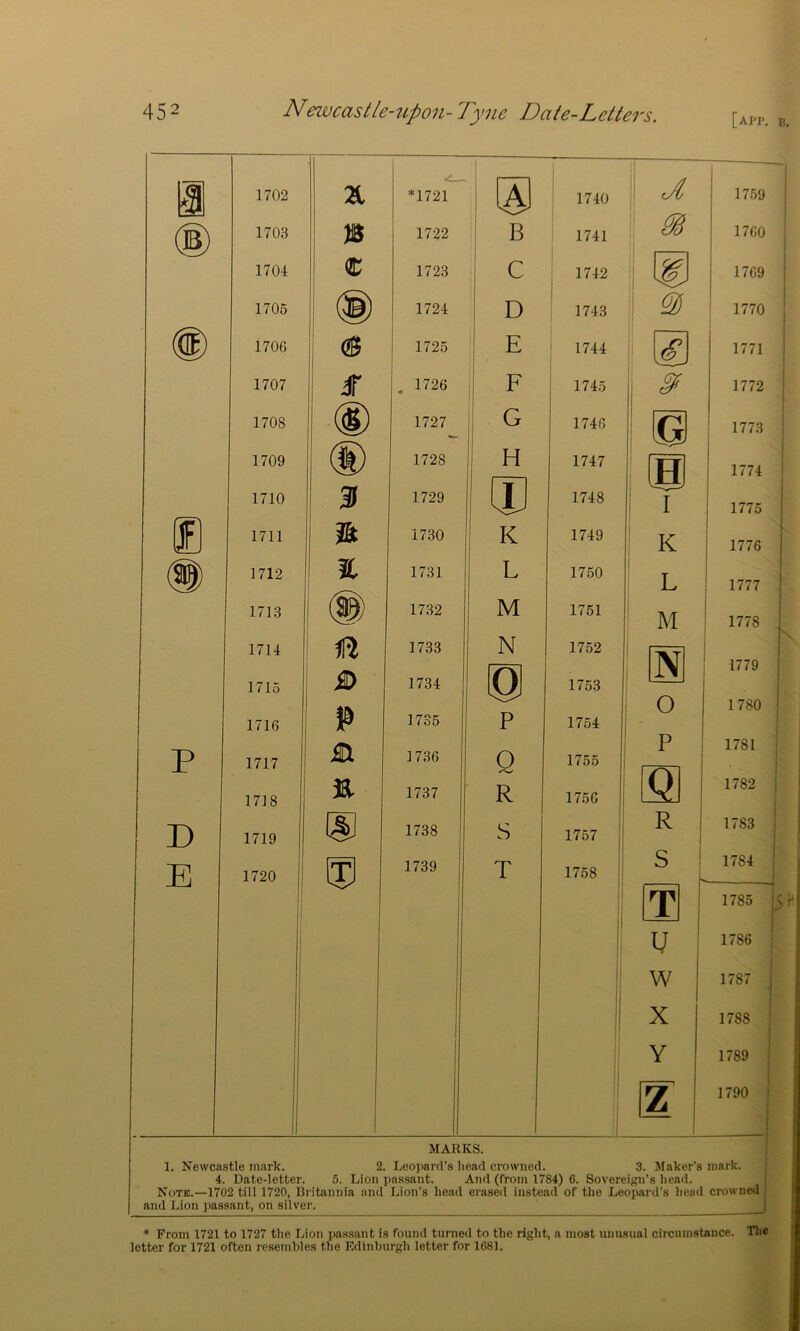 452 Newcastle-upon-Tyne Date-Letters. [APP. B.
A 1702 A *1721 A 1740 A 1759
B 1703 B 1722 B 1741 B 1760
1704 C 1723 C 1742 C 1769
1705 D 1724 D 1743 D 1770
E 1706 E 1725 E 1744 E 1771
1707 F 1726 F 1745 F 1772
1708 G 1727 G 1746 G 1773
1709 H 1728 H 1747 H 1774
1710 I 1729 I 1748 I 1775
F 1711 K 1730 K 1749 K 1776
M 1712 L 1731 L 1750 L 1777
1713 M 1732 M 1751 M 1778
1714 N 1733 N 1752 N 1779
1715 O 1734 O 1753 O 1780
1716 P 1735 P 1754 P 1781
P 1717 Q 1736 Q 1755 Q 1782
1718 R 1737 R 1756 R 1783
D 1719 S 1738 S 1757 S 1784
E 1720 T 1739 T 1758 T 1785
U 1786
W 1787
X 1788
Y 1789
Z 1790
MARKS.
1. Newcastle mark. 2. Leopard's head crowned. 3. Maker's mark.
4. Date-letter. 5. Lion passant. And (from 1784) 6. Sovereign's head.
NOTE.—1702 till 1720, Britannia and Lion's head erased instead of the Leopard's head crowned
and Lion passant, on silver.
* From 1721 to 1727 the Lion passant is found turned to the right, a most unusual circumstance. The
letter for 1721 often resembles the Edinburgh letter for 1681.